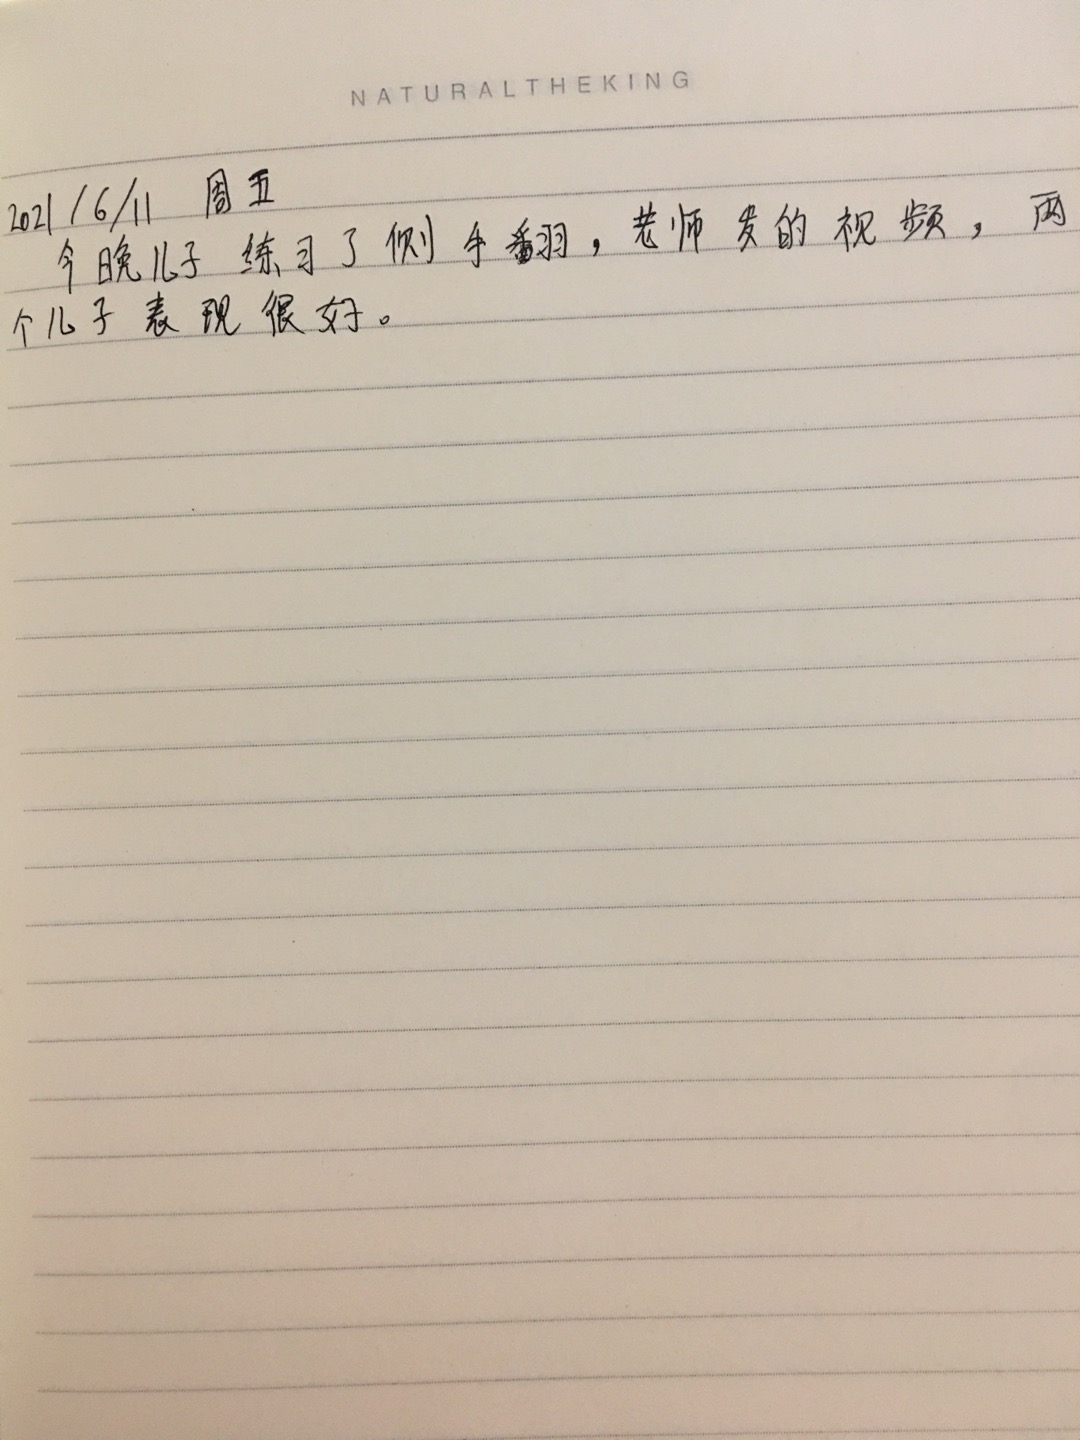 NATURALTHEKING
2021/6/11 周五
今晚儿子练习了侧手翻，老师发的视频，两
个儿子表现很好。